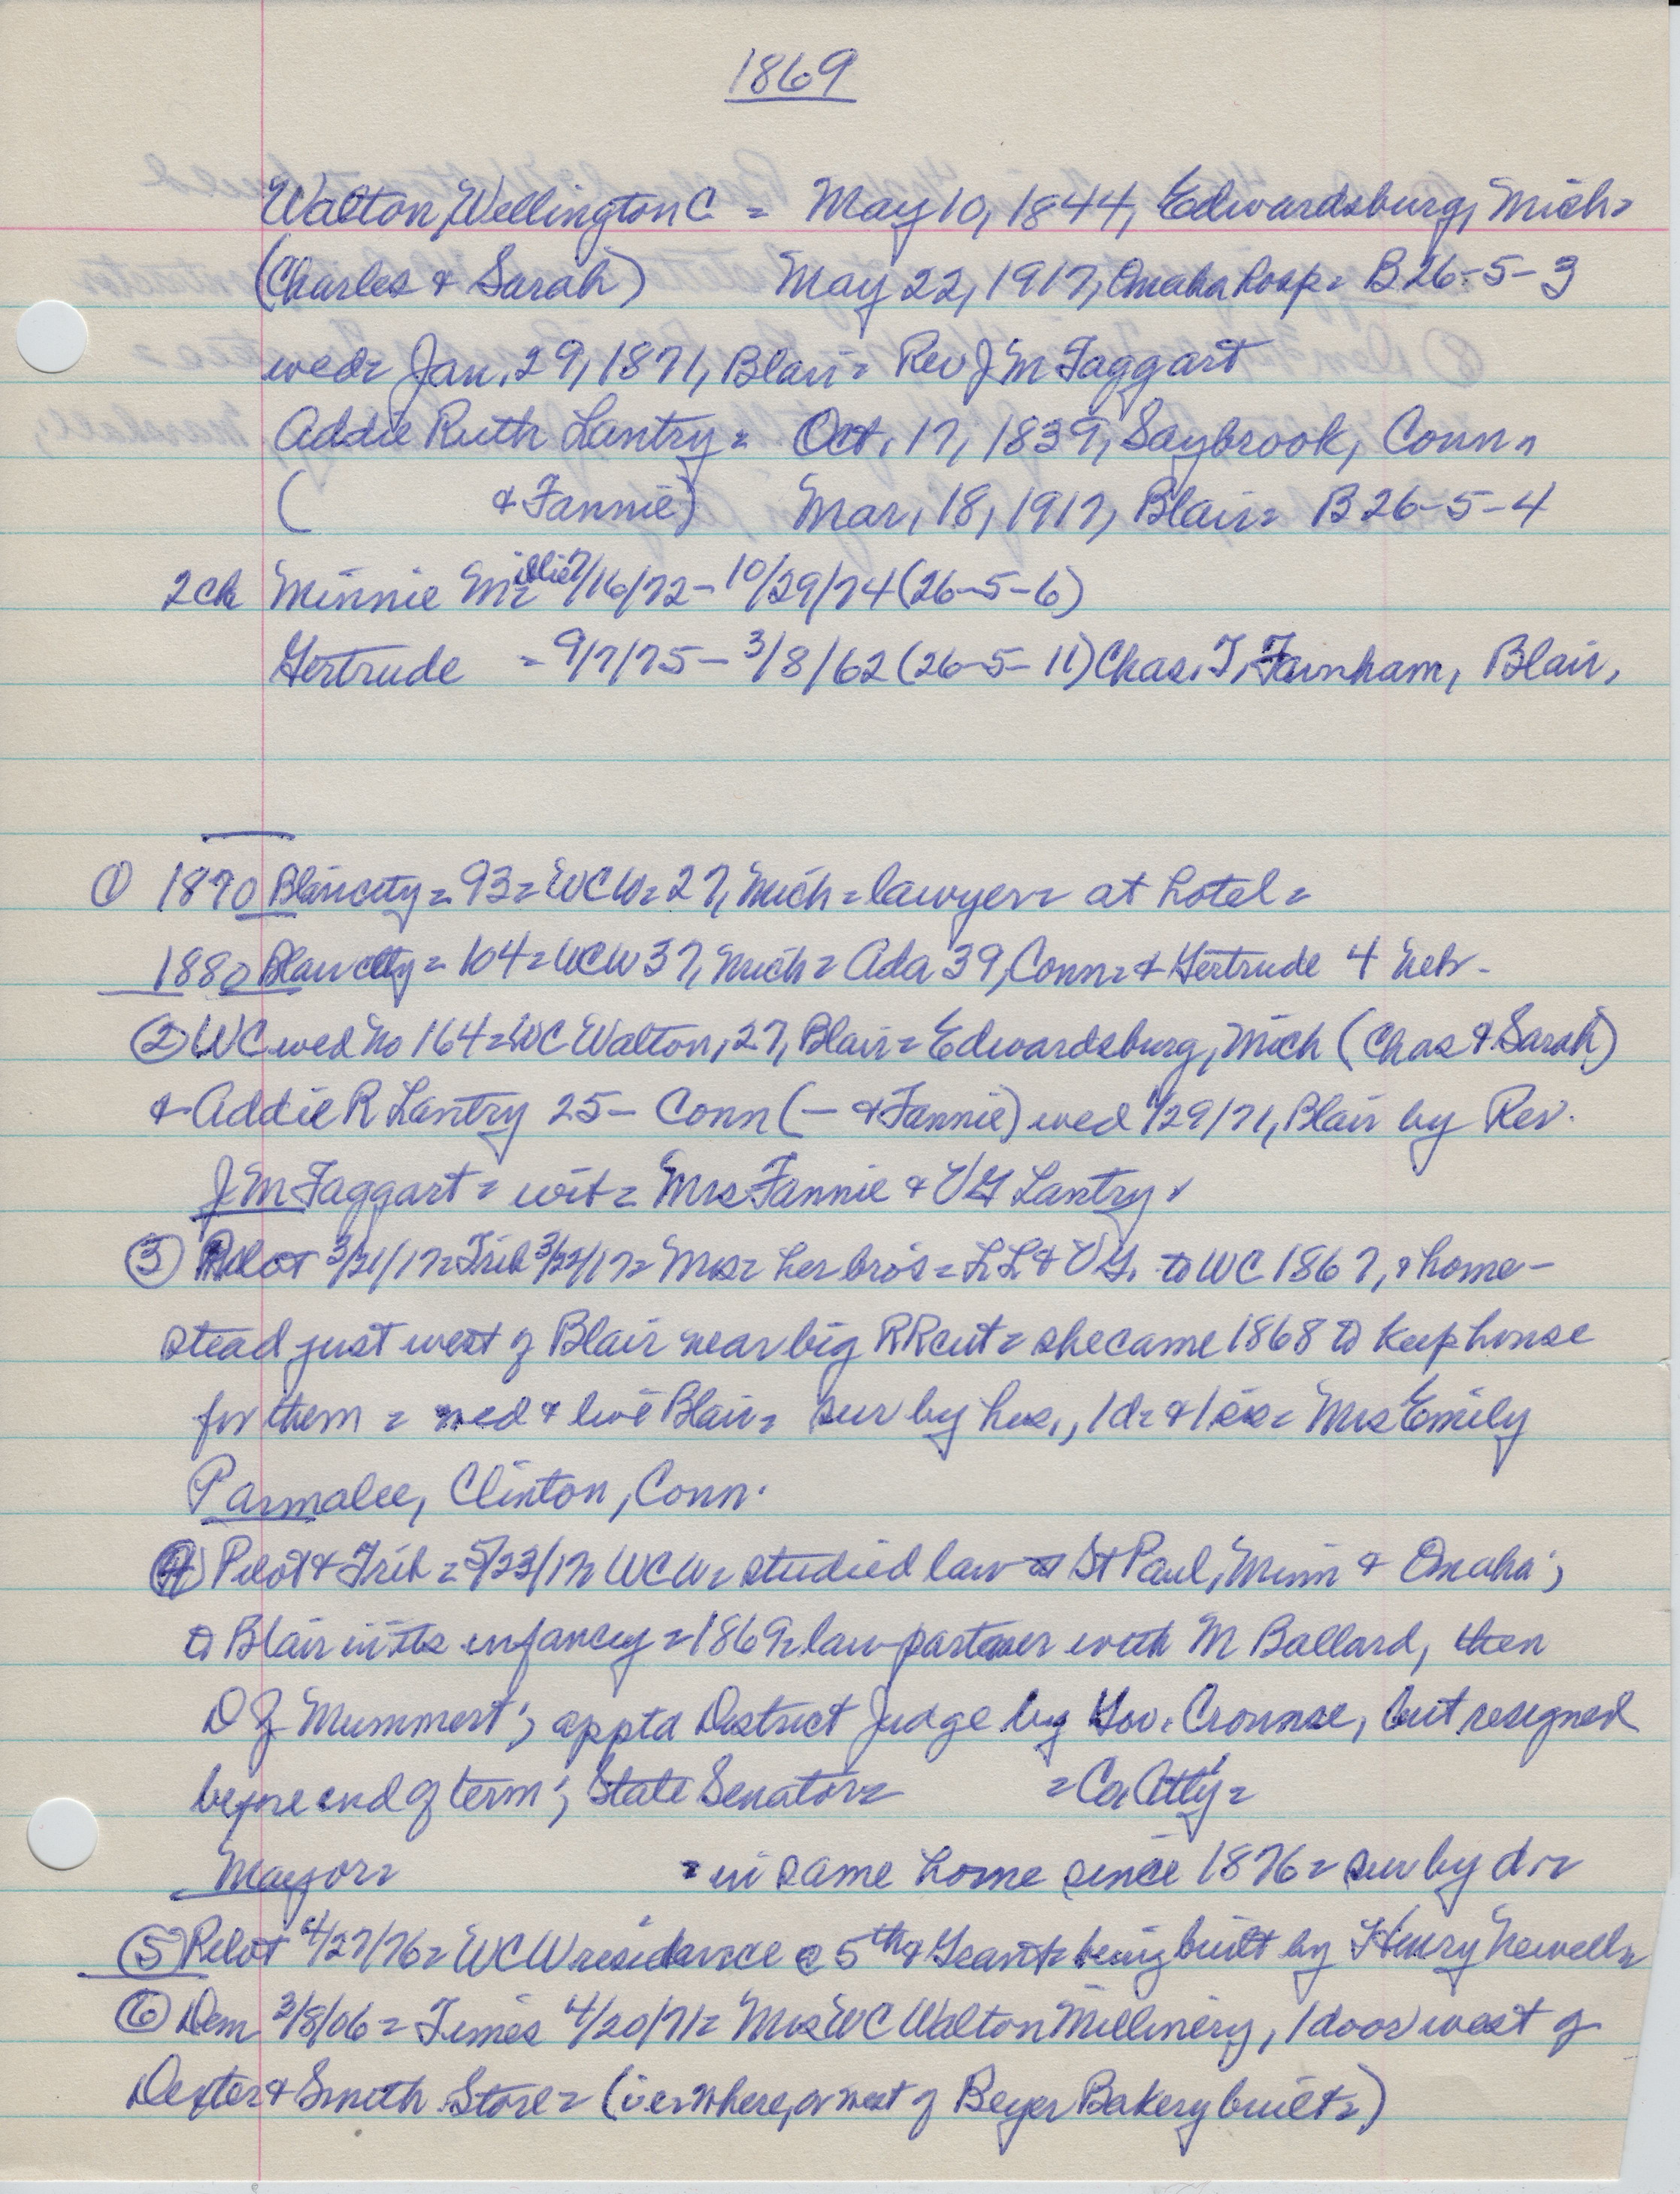 1869
Walton, Wellington C. = May 10, 1844, Edwardsburg, Mich=
(Charles & Sarah) May 22, 1917, Omaha hosp= B26-5-3
wed= Jan. 29, 1871, Blair= Rev J M Taggart
Addie Ruth Lantry= Oct. 17, 1839, Saybrook, Conn=
( & Fannie) Mar. 18, 1917, Blair= B26-5-4
2ch Minnie Millie= 7/16/72-10/29/74 (26-5-6)
Gertrude =9/7/75-3/8/62 (26-5-11) Chas. T. Farnham, Blair.
① 1870 Blair city= 93= WCW= 27, Mich= lawyer= at hotel=
1880 Blair city= 104= WCW 37, Mich= Ada 39, Conn= & Gertrude 4 Nebr-
② WC wed No 164= WC Walton, 27, Blair= Edwardsburg, Mich (Chas & Sarah)
& Addie R Lantry 25- Conn (- & Fannie) wed 1/29/71, Blair by Rev.
J M Taggart= wit= Mrs Fannie & VG Lantry
③ Pilot 3/21/17= Trib 3/22/17= Mrs= her bro's= LL & VG. to WC 1867, & home-
stead just west of Blair near big RR cut= she came 1868 to keep house
for them = wed & live Blair= sur by hus., 1d= & 1 sis= Mrs Emily
Parmalee, Clinton, Conn.
④ Pilot & Trib= 5/23/17= WCW= studied law St Paul, Minn & Omaha;
to Blair in its infancy= 1869= law partner with M Ballard, then
D Z Mummert; appt'd District Judge by Gov. Crounse, but resigned
before end of term; State Senator= =Co Atty=
Mayor= =in same home since 1876= sur by d==
⑤ Pilot 4/27/76= WCW residence @ 5th & Grant= being built by Henry Newell=
⑥ Dem 3/8/06= Times 4/20/71= Mrs WC Walton Millinery, 1 door west of
Dexter & Smith Store= (i.e. where, or west of Beyer Bakery built=)